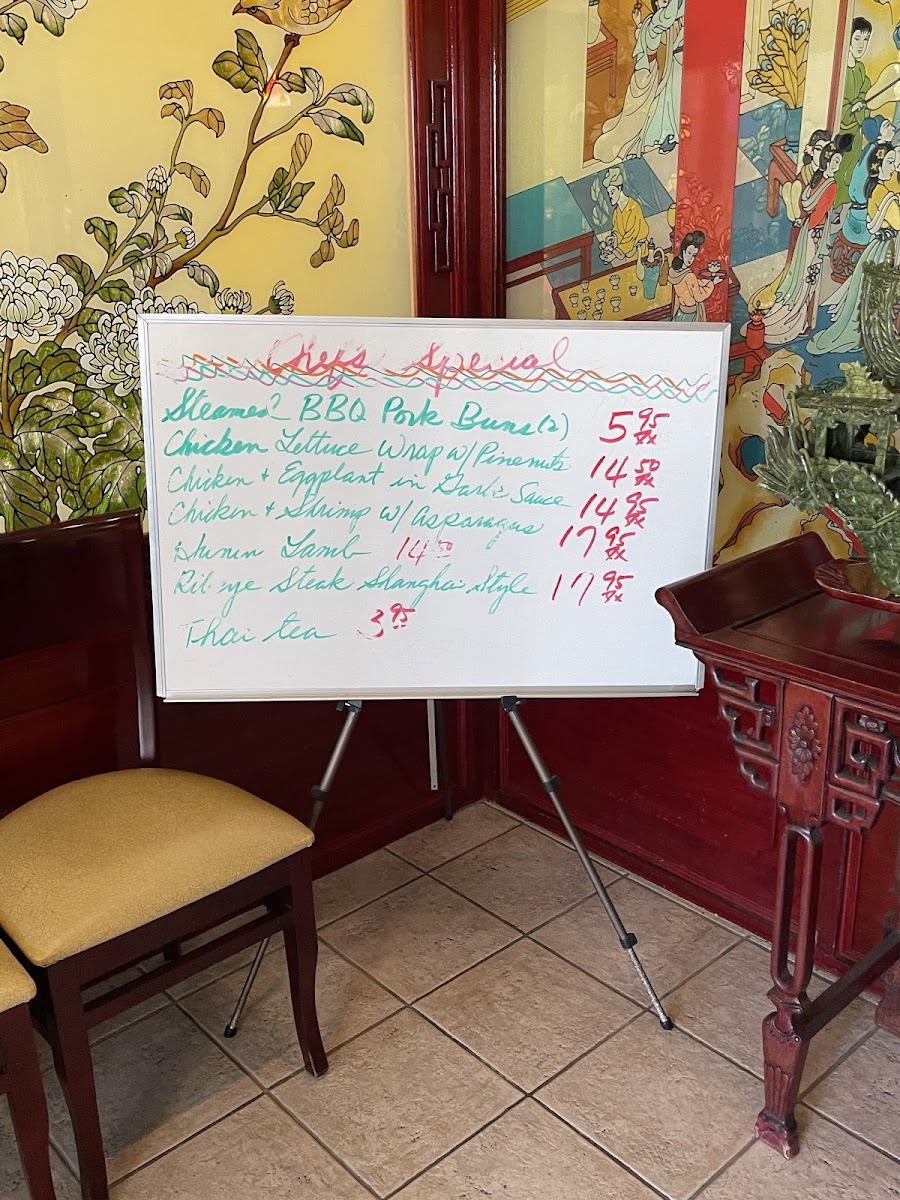 Chef's Special
Steamed BBQ Pork Buns (2) 5.95
Chicken Lettuce Wrap w/ Pinenuts 14.50
Chicken + Eggplant in Garlic Sauce 14.95
Chicken + Shrimp w/ Asparagus 17.95
Hunan Lamb 14.50
Rib-eye Steak Shanghai Style 17.95
Thai tea 3.95